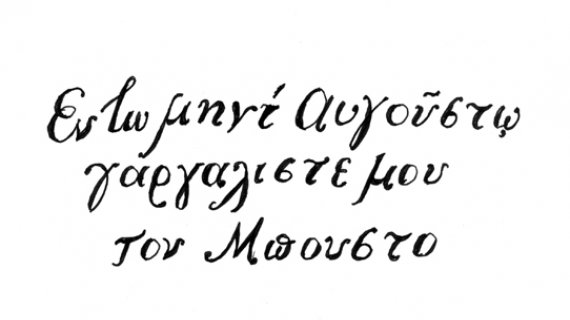 Εν τω μηνί Αυγούστῳ
γαργαλιστε μου
τον Μπουστο